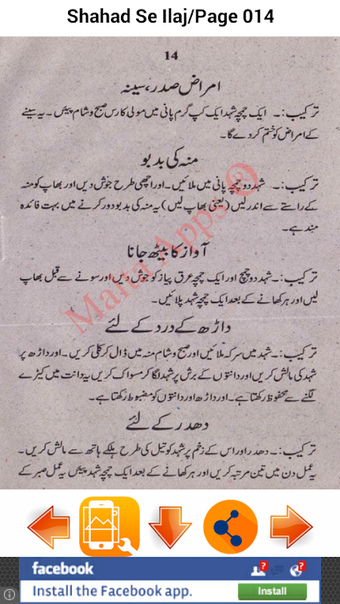 Shahad Se Ilaj/Page 014
14
امراض صدر، سینہ
ترکیب:۔ ایک چمچہ شہد ایک کپ گرم پانی میں مولی کا رس صبح و شام پئیں۔ یہ سینے
کے امراض کو ختم کر دے گا۔
منہ کی بدبو
ترکیب:۔ شہد دو چمچہ پانی میں ملائیں۔ اور اچھی طرح جوش دیں اور بھاپ کو منہ
کے راستے سے اندر لیں (یعنی بھاپ لیں) یہ منہ کی بدبو دور کرنے میں بہت فائدہ
مند ہے۔
آواز کا بیٹھ جانا
ترکیب:۔ شہد دو چمچ اور ایک چمچہ عرق پیاز کو جوش دیں اور سونے سے قبل بھاپ
لیں اور ہر کھانے کے بعد ایک چمچہ شہد پلائیں۔
داڑھ کے درد کے لئے
ترکیب:۔ شہد میں سرکہ ملائیں اور صبح و شام منہ میں ڈال کر کلی کریں۔ اور داڑھ پر
شہد کی مالش کریں اور دانتوں کے برش پر شہد لگا کر مسواک کریں یہ دانت میں کیڑے
لگنے سے محفوظ رکھتا ہے۔ اور داڑھ اور دانتوں کو مضبوط رکھتا ہے۔
دھدر کے لئے
ترکیب:۔ دھدر اور اس کے زخم پر شہد کو تیل کی طرح ہلکے ہاتھ سے مالش کریں۔
یہ عمل دن میں تین مرتبہ کریں اور ہر کھانے کے بعد ایک چمچہ شہد پئیں یہ عمل صبر کے
Maha Apps ®
facebook
Install the Facebook app.
Install